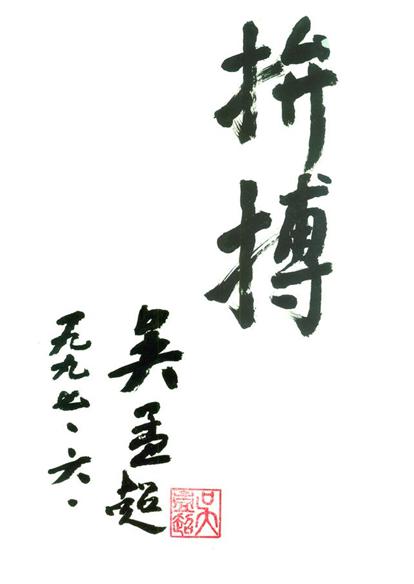 拚搏
吴孟超
一九九七、六、
吴孟超